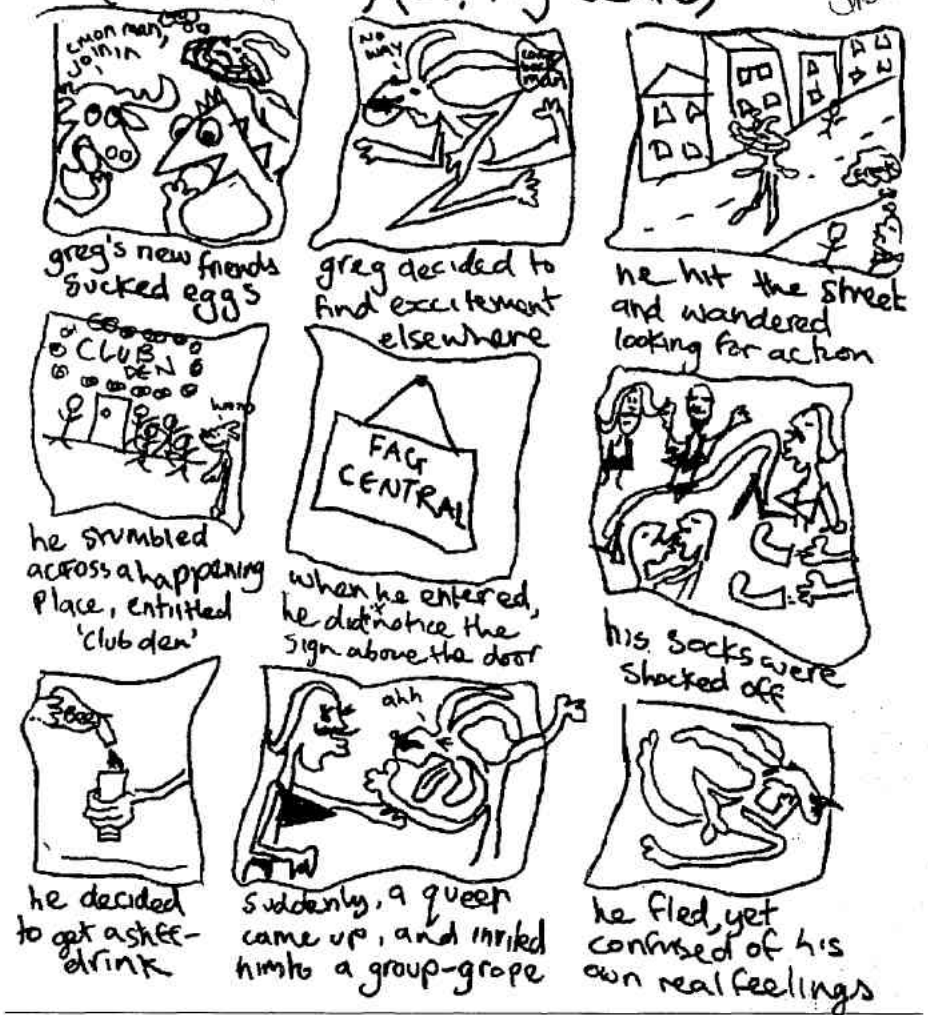 c'mon man,
join in
greg's new friends
sucked eggs
NO
WAY
come
back
man
greg decided to
find excitement
elsewhere
he hit the street
and wandered
looking for action
CLUB
DEN
he stumbled
across a happening
place, entitled
'club den'
FAG
CENTRAL
when he entered,
he didn't notice the
sign above the door
his socks were
shocked off
Beer
he decided
to get a stiff-
drink
ahh
suddenly, a queen
came up, and invited
him to a group-grope
he fled, yet
confused of his
own real feelings